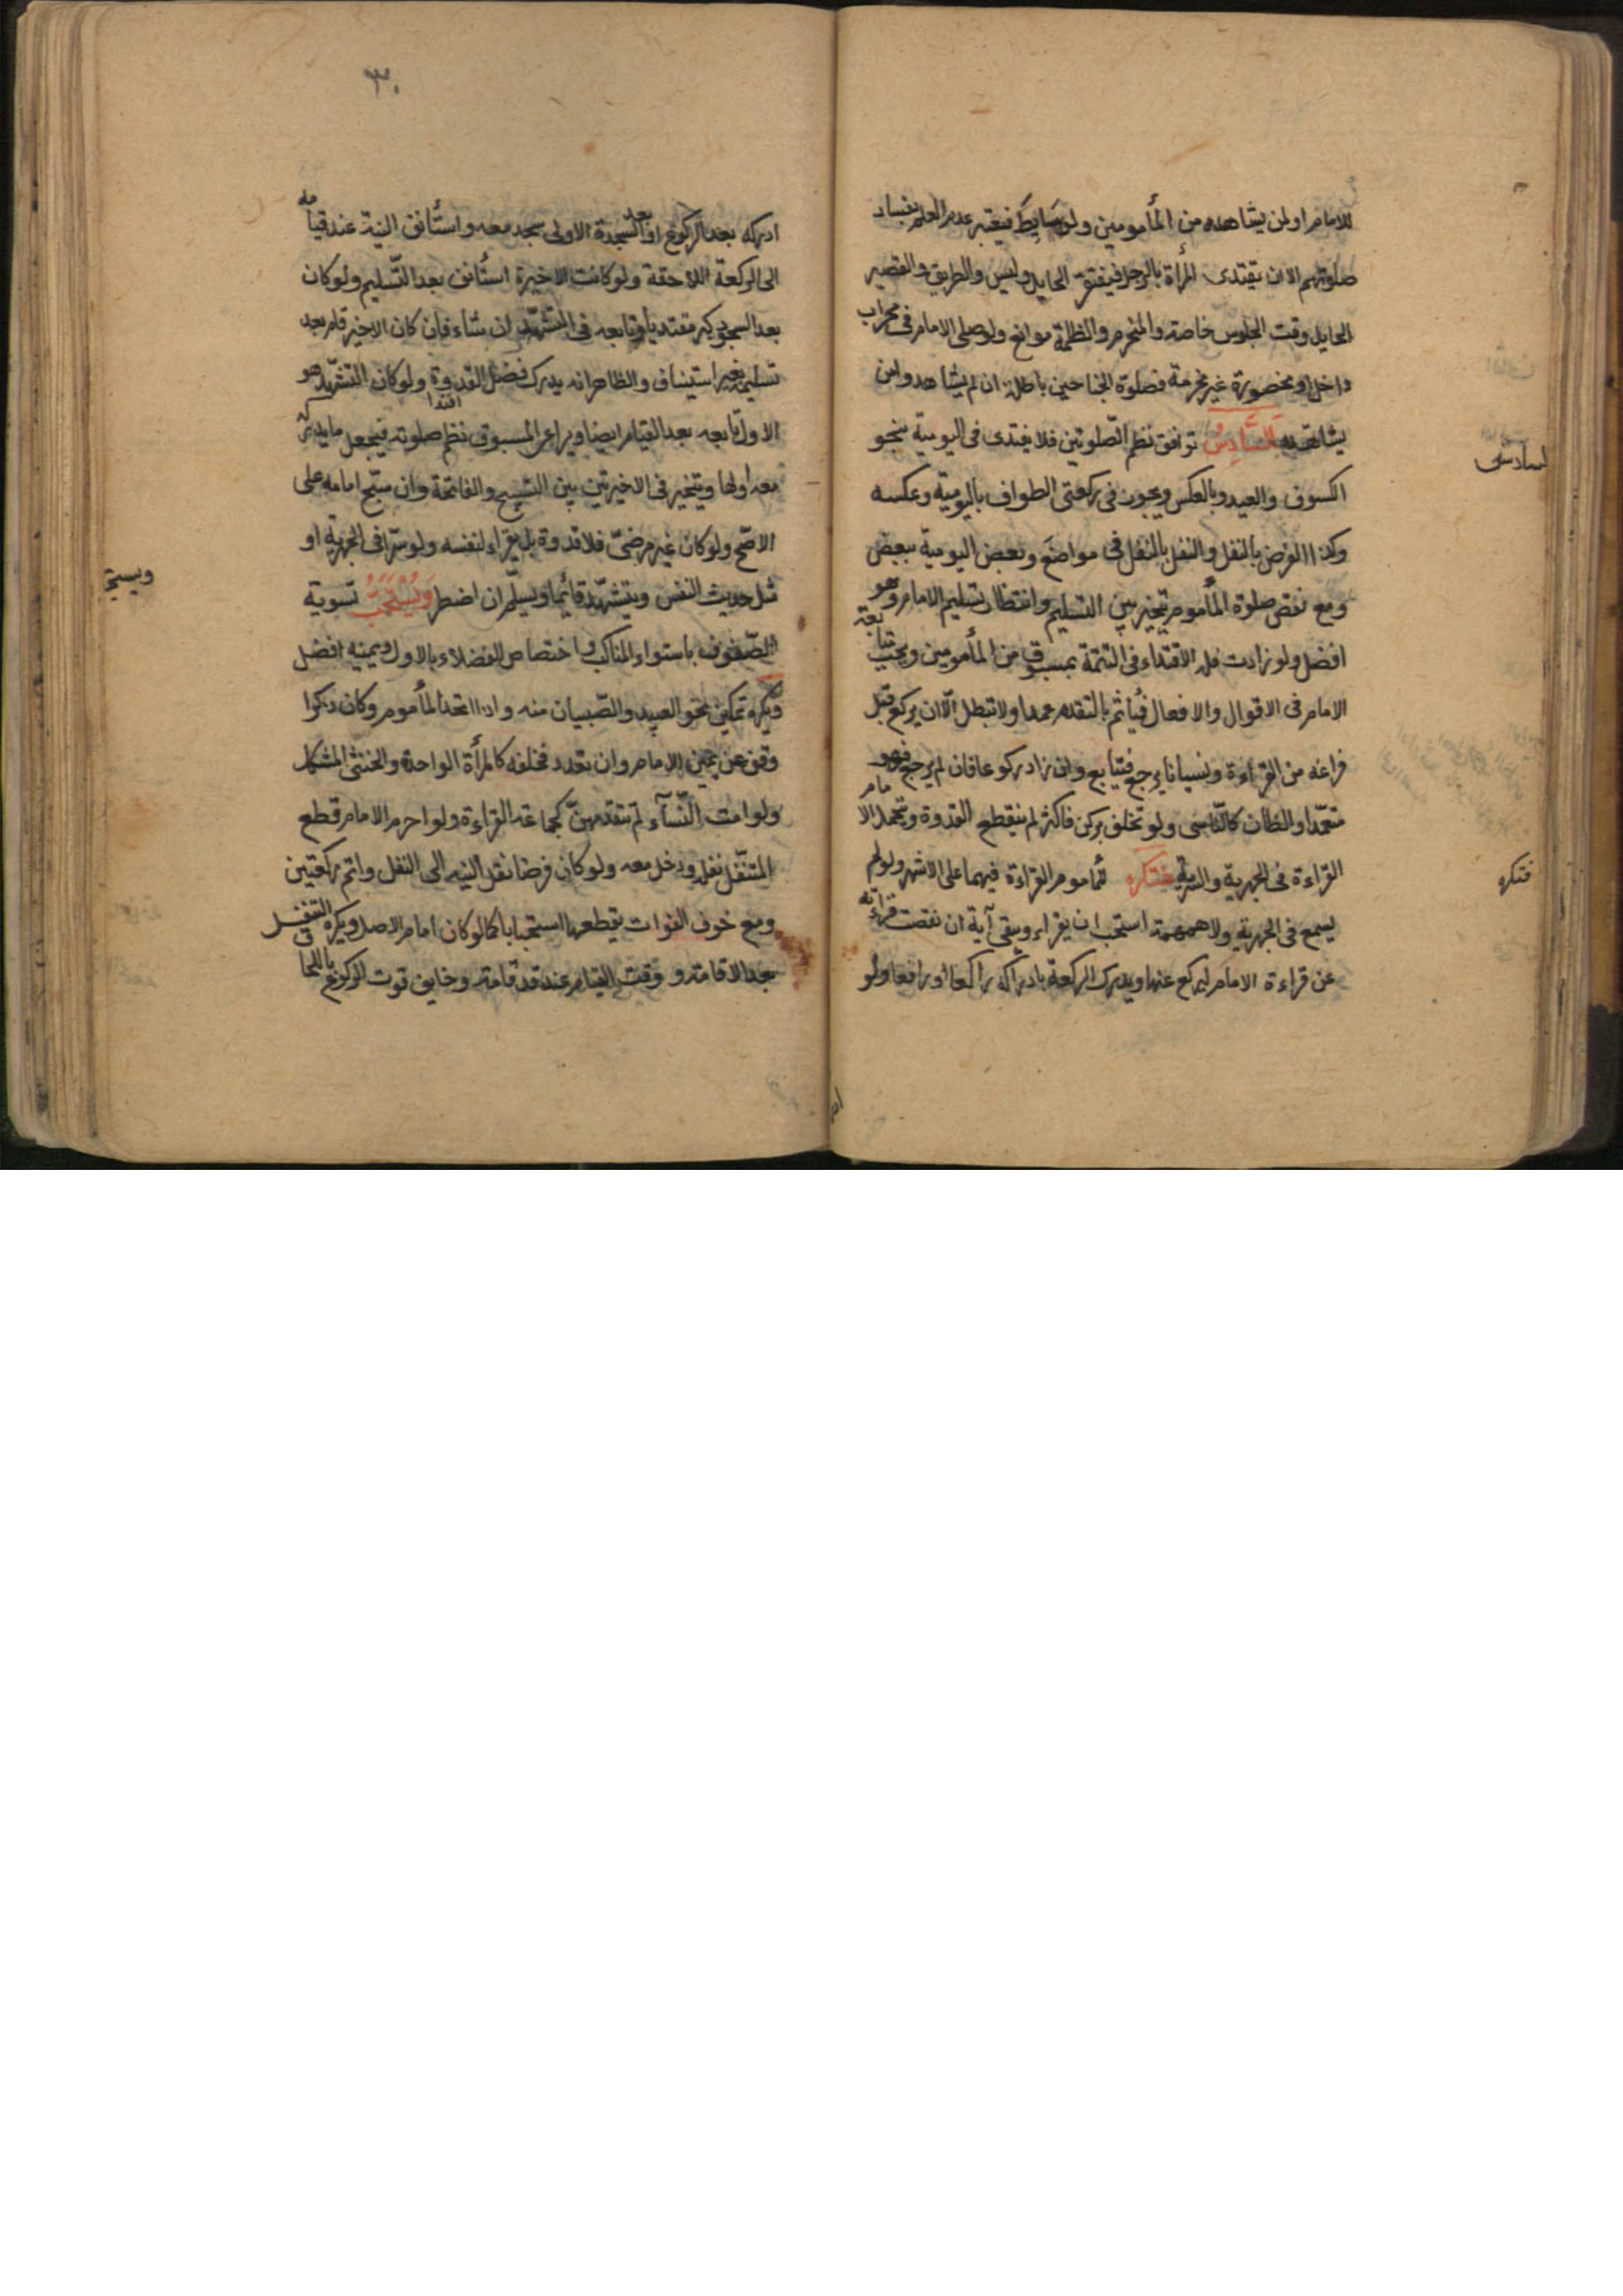 للامام او لمن يشاهده من المأمومين ولو بوسايط فيعتبر عدم العلم بفساد
صلوتهم الا ان يقتدى المرأة بالرجل فيغتفر الحايل وليس والطريق والقصير
الحايل وقت الجلوس خاصة والمخرم والظلمة موانع ولو صلى الامام فى محراب
داخل او مقصورة غير مخرمة فصلوة الجناحين باطلة ان لم يشاهد واس
يشاهده السَّادِسُ توافق نظم الصّلوتين فلا يقتدى فى اليومية بنحو
السادس
الكسوف والعيد وبالعكس ويجوز فى ركعتى الطواف باليومية وعكسه
وكذا الفرض بالنفل والنفل بالنفل فى مواضع وبعض اليومية ببعض
ومع نقص صلوة المأموم يتخير بين التسليم وانتظار تسليم الامام وهو
افضل ولو زادت فله الاقتداء فى التتمة بمسبوق من المأمومين ويجب متابعة
الامام فى الاقوال والافعال فيأثم بالتقدم عمدا ولا تبطل الّا ان يركع قبل
فراغه من القراءة ونسيانا يرجع فيتابع وان زاد ركوعا فان لم يرجع فهو
متعمّد او الظان كالنّاسى ولو تخلف بركن فاكثر لم ينقطع القدوة ويتحمل الامام
القراءة فى الجهرية والسرية فتكره للمأموم القراءة فيهما على الاشهر ولو لم
فتكره
يسمع فى الجهرية ولا همهمة استحب ان يقراء ويبقى آية ان نقصت قراءته
عن قراءة الامام ليركع عنها ويدرك الركعة بادراكه راكعا او رافعا ولو
٣٠
ادركه بعد الركوع او بعد السجدة الاولى سجد معه واستأنف النية عند قيامه
الى الركعة اللاحقة ولو كانت الاخيرة استأنف بعد التّسليم ولو كان
بعد السجود كبر مقتديا وتابعه فى التشهّد ان شاء فان كان الاخير قام بعد
تسليمه بغير استيناف والظاهر انه يدرك فضل القدوة ولو كان التشهّد هو
الاول تابعه بعد القيام ايضا ويراعى المسبوق نظم صلوته فيجعل ما يدركه
معه اولها ويتخير فى الاخيرتين بين التسبيح والفاتحة وان سبّح امامه على
الاصّح ولو كان غير مرضىّ فلا قدوة بل يقراء لنفسه ولو سرّا فى الجهرية او
مثل حديث النفس ويتشهّد قائما ويسلّم ان اضطر وَيُسْتَحَبُّ تسوية
ويستحب
الصّفوف باستواء المناكب واختصاص الفضلاء بالاول ويمينه افضل
ويكره تمكين نحو العبيد والصّبيان منه واذا اتحد المأموم وكان ذكرا
وقف عن يمين الامام وان تعدد فخلفه كالمرأة الواحدة والخنثى المشكل
ولو امت النّسآء لم تتقدمهنّ كجماعة العراة ولو احرم الامام قطع
المتنفّل نفله ودخل معه ولو كان فرضا نقل النيه الى النفل واتم ركعتين
ومع خوف الفوات يقطعها استحبابا كما لو كان امام الاصل ويكره التنفل
بعد الاقامة ووقت القيام عند قد قامت وخايف فوت الركوع باللحاق